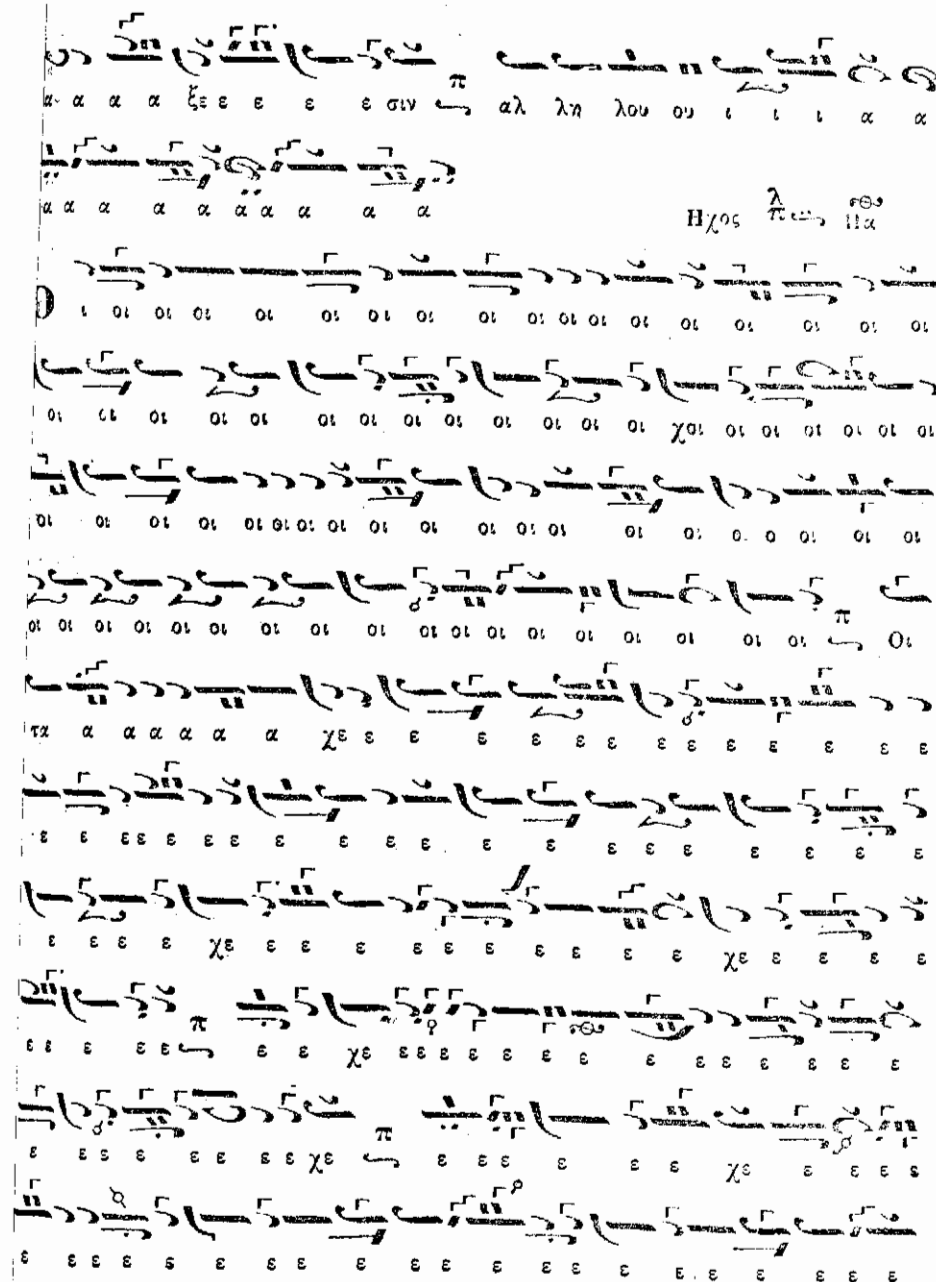 α α α α ξε ε ε ε ε σιν π αλ λη λου ου ι ι ι α α
α α α α α α α α α α
Ηχος λ π Πα
ι οι οι οι οι οι οι οι οι οι οι οι οι οι οι οι οι οι οι
οι οι οι οι οι οι οι οι οι οι οι οι οι χοι οι οι οι οι οι οι
οι οι οι οι οι οι οι οι οι οι οι οι οι οι οι οι οι ο ο οι οι οι
οι οι οι οι οι οι οι οι οι οι οι οι οι οι οι οι οι οι οι π οι
τα α α α α α α χε ε ε ε ε ε ε ε ε ε ε ε ε ε
ε ε ε ε ε ε ε ε ε ε ε ε ε ε ε ε ε ε ε
ε ε ε ε χε ε ε ε ε ε ε ε ε ε ε χε ε ε ε ε
ε ε ε ε ε π ε ε χε ε ε ε ε ε ε ε ε ε ε ε ε ε ε
ε ε ε ε ε ε ε ε χε π ε ε ε ε ε ε χε ε ε ε ε
ε ε ε ε ε ε ε ε ε ε ε ε ε ε ε ε ε ε ε